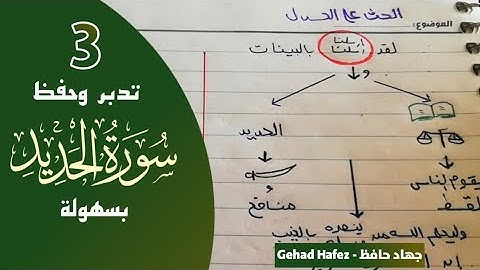 3
تدبر وحفظ
سورة الحديد
بسهولة
الموضوع:
الحث على العدل
أرسلنا
لقد أرسلنا بالبينات
و
الحديد
منافع
ليقوم الناس
بالقسط
وليعلم الله من ينصره بالغيب
جهاد حافظ - Gehad Hafez